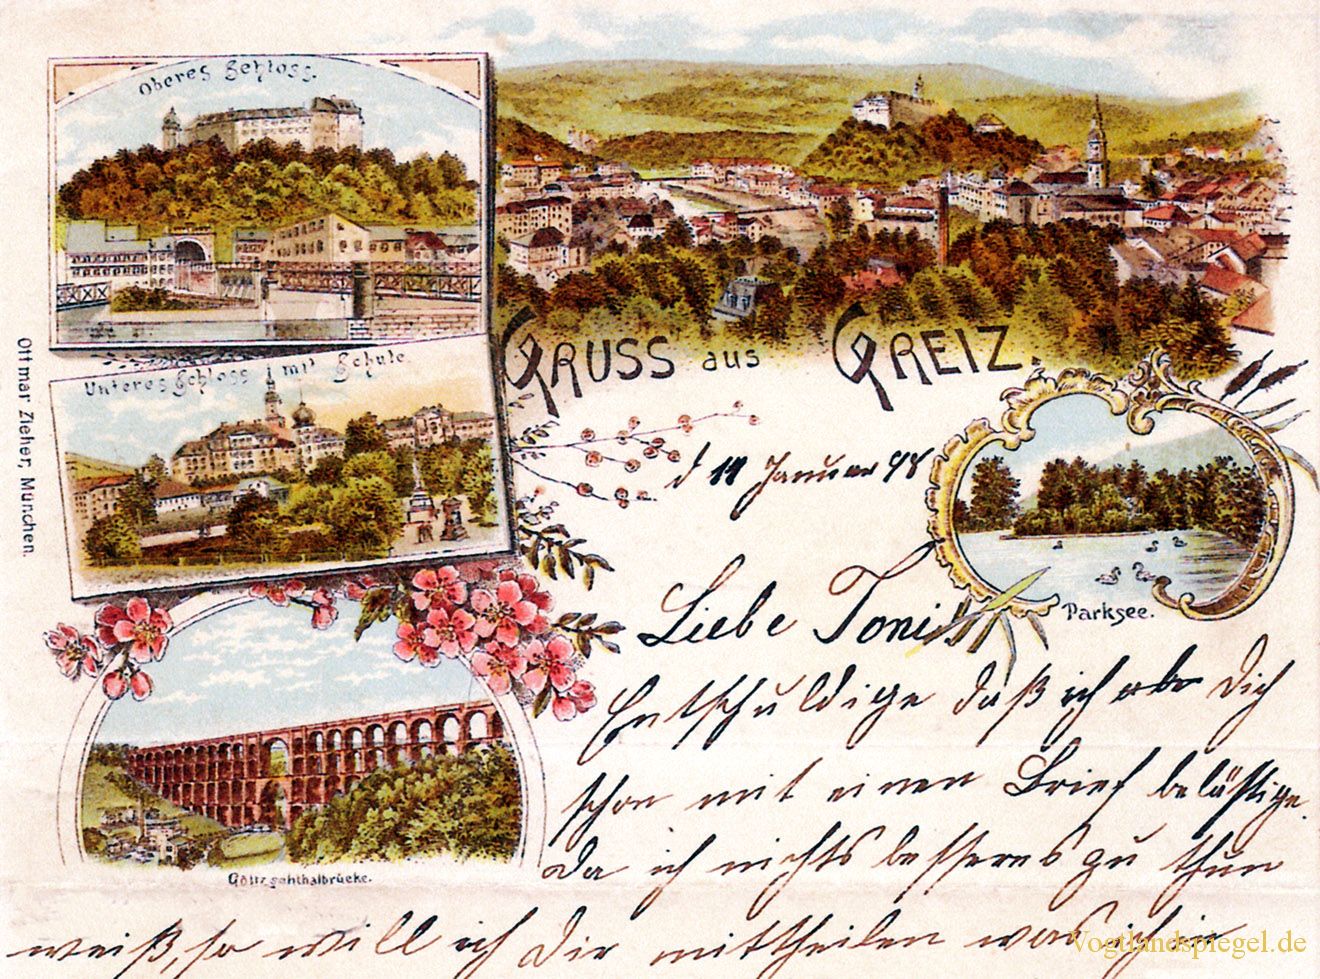 Oberes Schloss.
Unteres Schloss mit Schule.
GRUSS aus GREIZ.
Parksee.
Göltzschthalbrücke.
Ottmar Zieher, München.
d 11 Januar 98
Liebe Toni
Entschuldige daß ich Dich
schon mit einen Brief belästige.
Da ich nichts besseres zu thun
weiß, so will ich Dir mittheilen was ich
Vogtlandspiegel.de